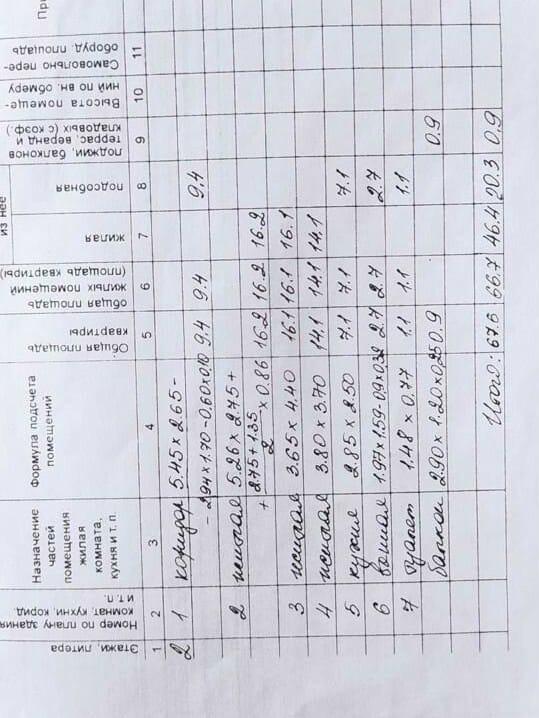 Этажи, литера
Номер по плану здания комнат, кухни, корид. и т. п.
Назначение частей помещения жилая комната, кухня и т. п.
Формула подсчета помещений
Общая площадь квартиры
общая площадь жилых помещений (площадь квартиры)
из нее
жилая
подсобная
лоджии, балконов террас, веранд и кладовых (с коэф.)
Высота помещений по вн. обмеру
Самовольно пере- оборуд. площадь
1 2 3 4 5 6 7 8 9 10 11
2 1 коридор 5.45 x 2.65 -
- 2.94 x 1.70 - 0.60 x 0.10 9,4 9.4 9,4
2 жилая 5.26 x 2.75 +
+ 2.75 + 1.35 / 2 x 0.86 16.2 16.2 16.2
3 жилая 3.65 x 4.40 16.1 16.1 16.1
4 жилая 3.80 x 3.70 14.1 14.1 14,1
5 кухня 2.85 x 2.50 7.1 7.1 7.1
6 ванная 1.97 x 1.59 - 0.9 x 0.32 2.7 2.7 2.7
7 туалет 1.48 x 0.77 1.1 1.1 1.1
балкон 2.90 x 1.20 x 0.25 0.9 0.9
Итого: 67.6 66.7 46.4 20.3 0,9